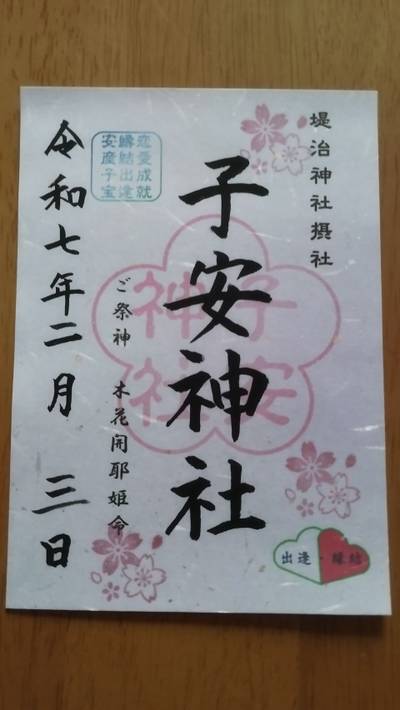 堤治神社摂社
子安神社
子安
神社
ご祭神 木花開耶姫命
恋愛成就
縁結出逢
安産子宝
令和七年二月 三日
出逢・縁結